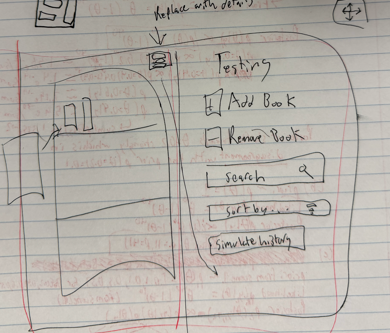 Replace with details
Testing
Add Book
Remove Book
search
sort by...
simulate history